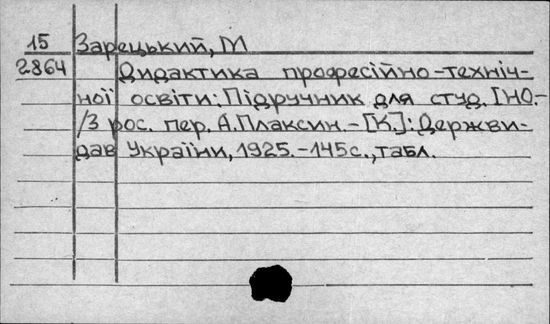 15 Зарецький, М
2864 Дидактика професійно-техніч-
ної освіти: Підручник для студ. ІНО.-
/З рос. пер. А.Плаксин.-[К.]: Держви-
дав України, 1925.-145с., табл.